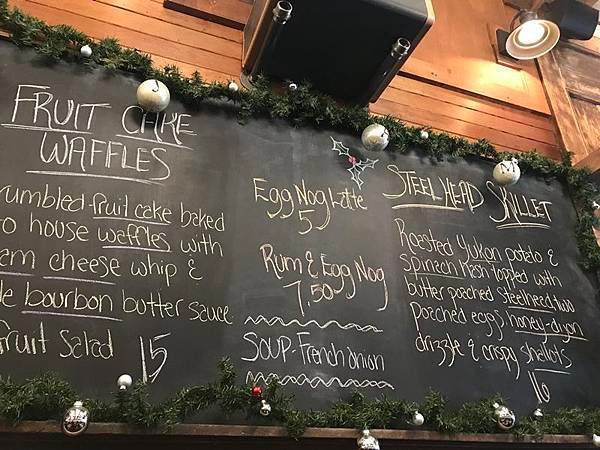 FRUIT CAKE
WAFFLES
rumbled fruit cake baked
to house waffles with
am cheese whip &
le bourbon butter sauce
fruit Salad 15
Egg Nog Latte
5
Rum & Egg Nog
7.50
SOUP-French onion
STEELHEAD SKILLET
Roasted Yukon potato &
spinach hash topped with
butter poached steelhead two
poached eggs honey-dijon
drizzle & crispy shallots
16